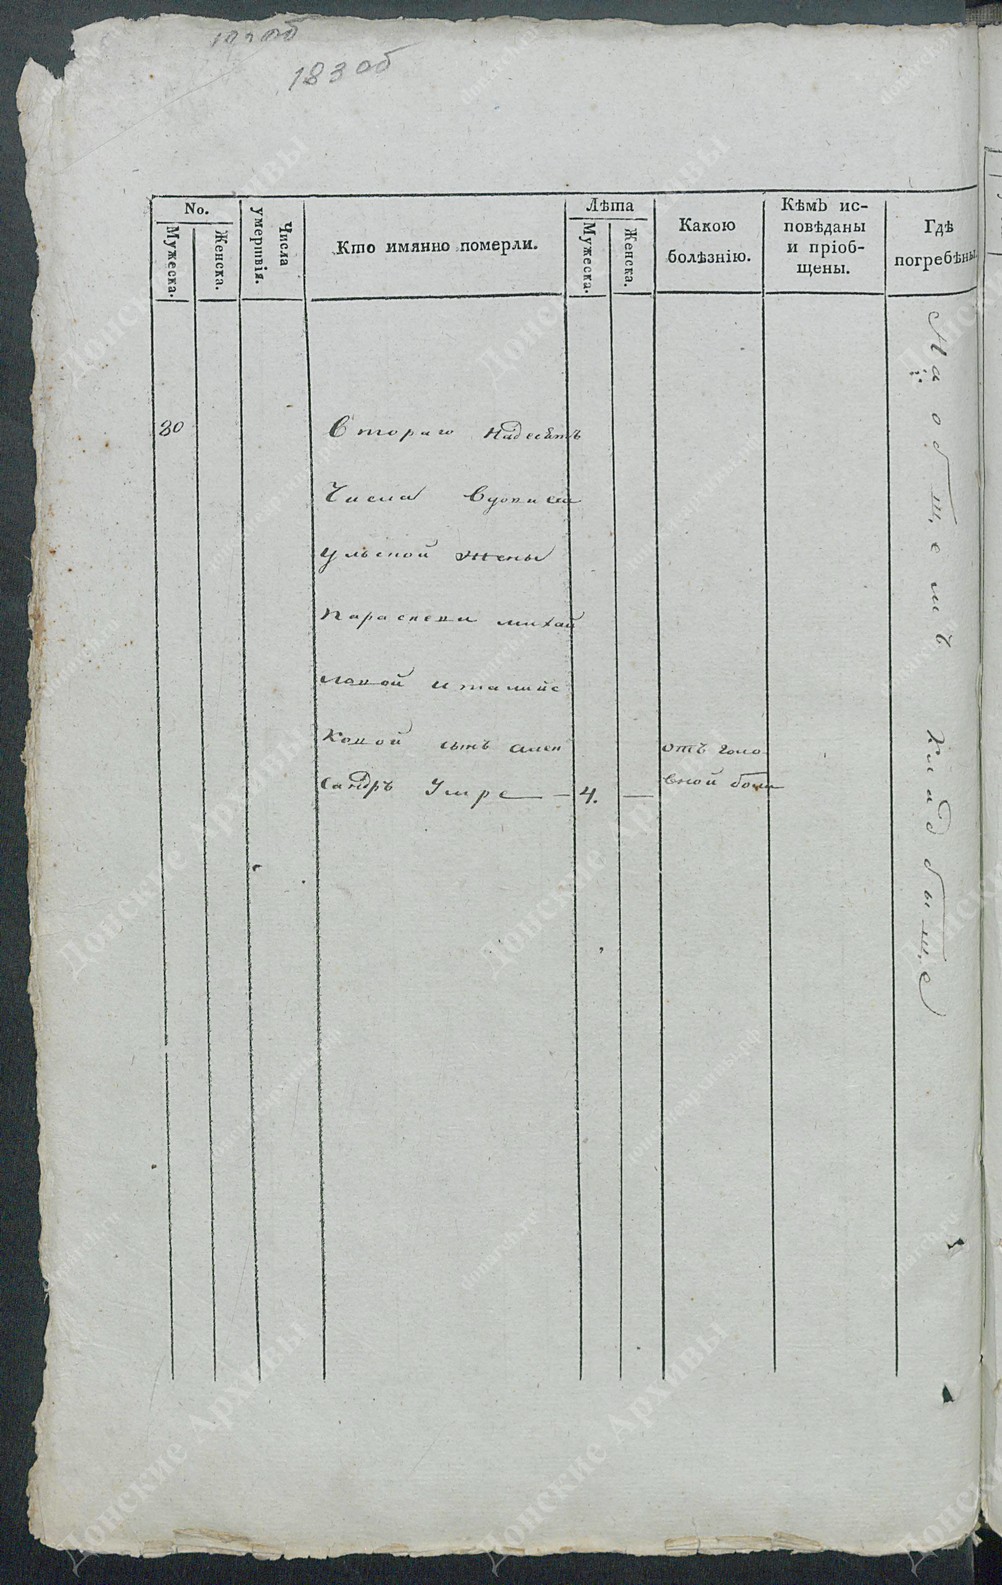 183 об
No.
Мужеска.
Женска.
Числа
умертвія.
Кто имянно померли.
Лѣта
Мужеска.
Женска.
Какою
болѣзнію.
Кѣмъ ис-
повѣданы
и пріоб-
щены.
Гдѣ
погребѣны.
30
Втораго надесѣть
Числа
ульской жены
Параскеви михай
ловой италийс
кокой сынъ алек
сандръ Умре — 4. —
отъ голо
вной боли
На обтщемъ кладбытще